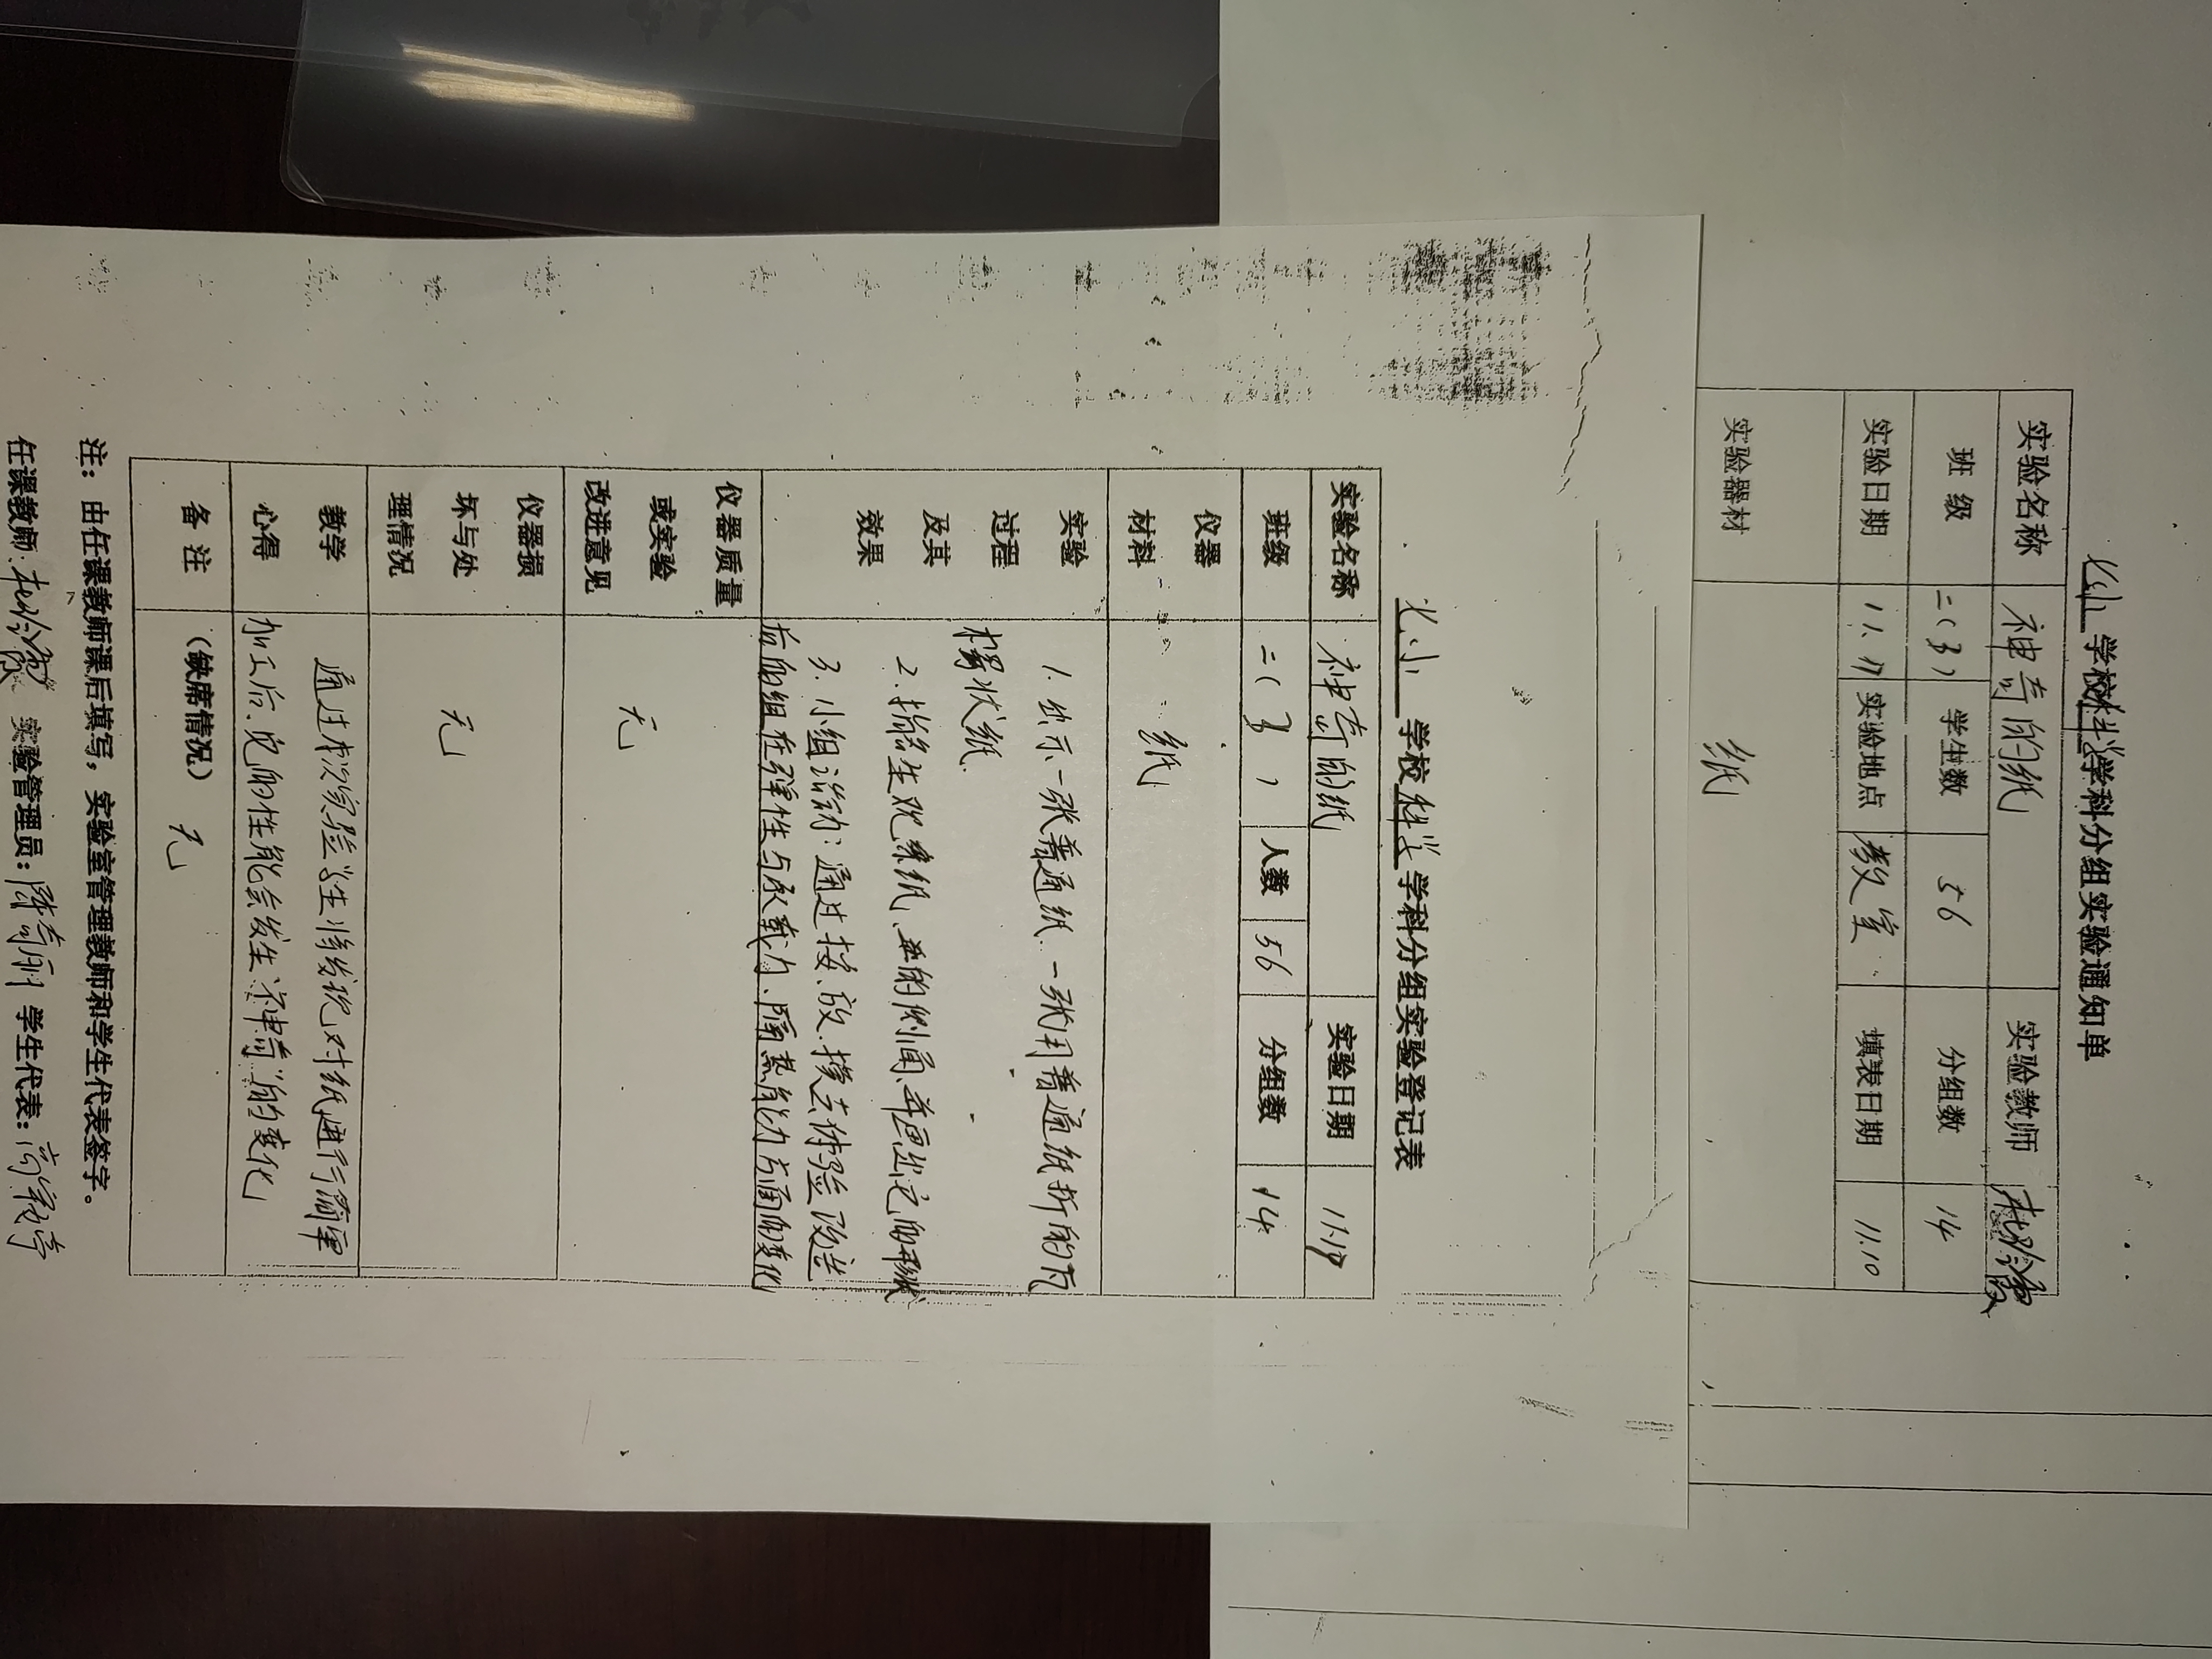 学校科学学科分组实验通知单
实验名称 神奇的纸 实验教师
班 级 二(3) 学生数 56 分组数 14
实验日期 11.17 实验地点 教室 填表日期 11.10
实验器材 纸
学校科学学科分组实验登记表
实验名称 神奇的纸 实验日期 11.17
班级 二(3) 人数 56 分组数 14
仪器材料 纸
实验过程及其效果
1. 出示一张普通纸、一张用普通纸折的瓦
楞状纸.
2. 指名生观察纸、的侧面,并画出它的形状
3. 小组活动:通过按、放、摸去体验改造
后的纸在弹性与承载力、隔热能力方面的变化
仪器质量或实验改进意见 无
仪器损坏与处理情况 无
教学心得
通过本次实验学生将发现对纸进行简单
加工后,它的性能会发生“神奇”的变化
备 注 (缺席情况) 无
注:由任课教师课后填写,实验室管理教师和学生代表签字。
任课教师: 实验管理员: 学生代表: